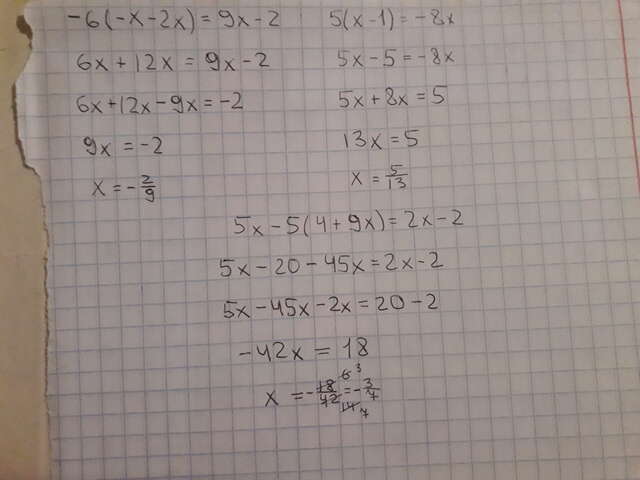 -6(-x-2x)=9x-2
6x+12x=9x-2
6x+12x-9x=-2
9x=-2
x=-2/9
5(x-1)=-8x
5x-5=-8x
5x+8x=5
13x=5
x=5/13
5x-5(4+9x)=2x-2
5x-20-45x=2x-2
5x-45x-2x=20-2
-42x=18
x=-18/42=-3/7
6 3
14 7